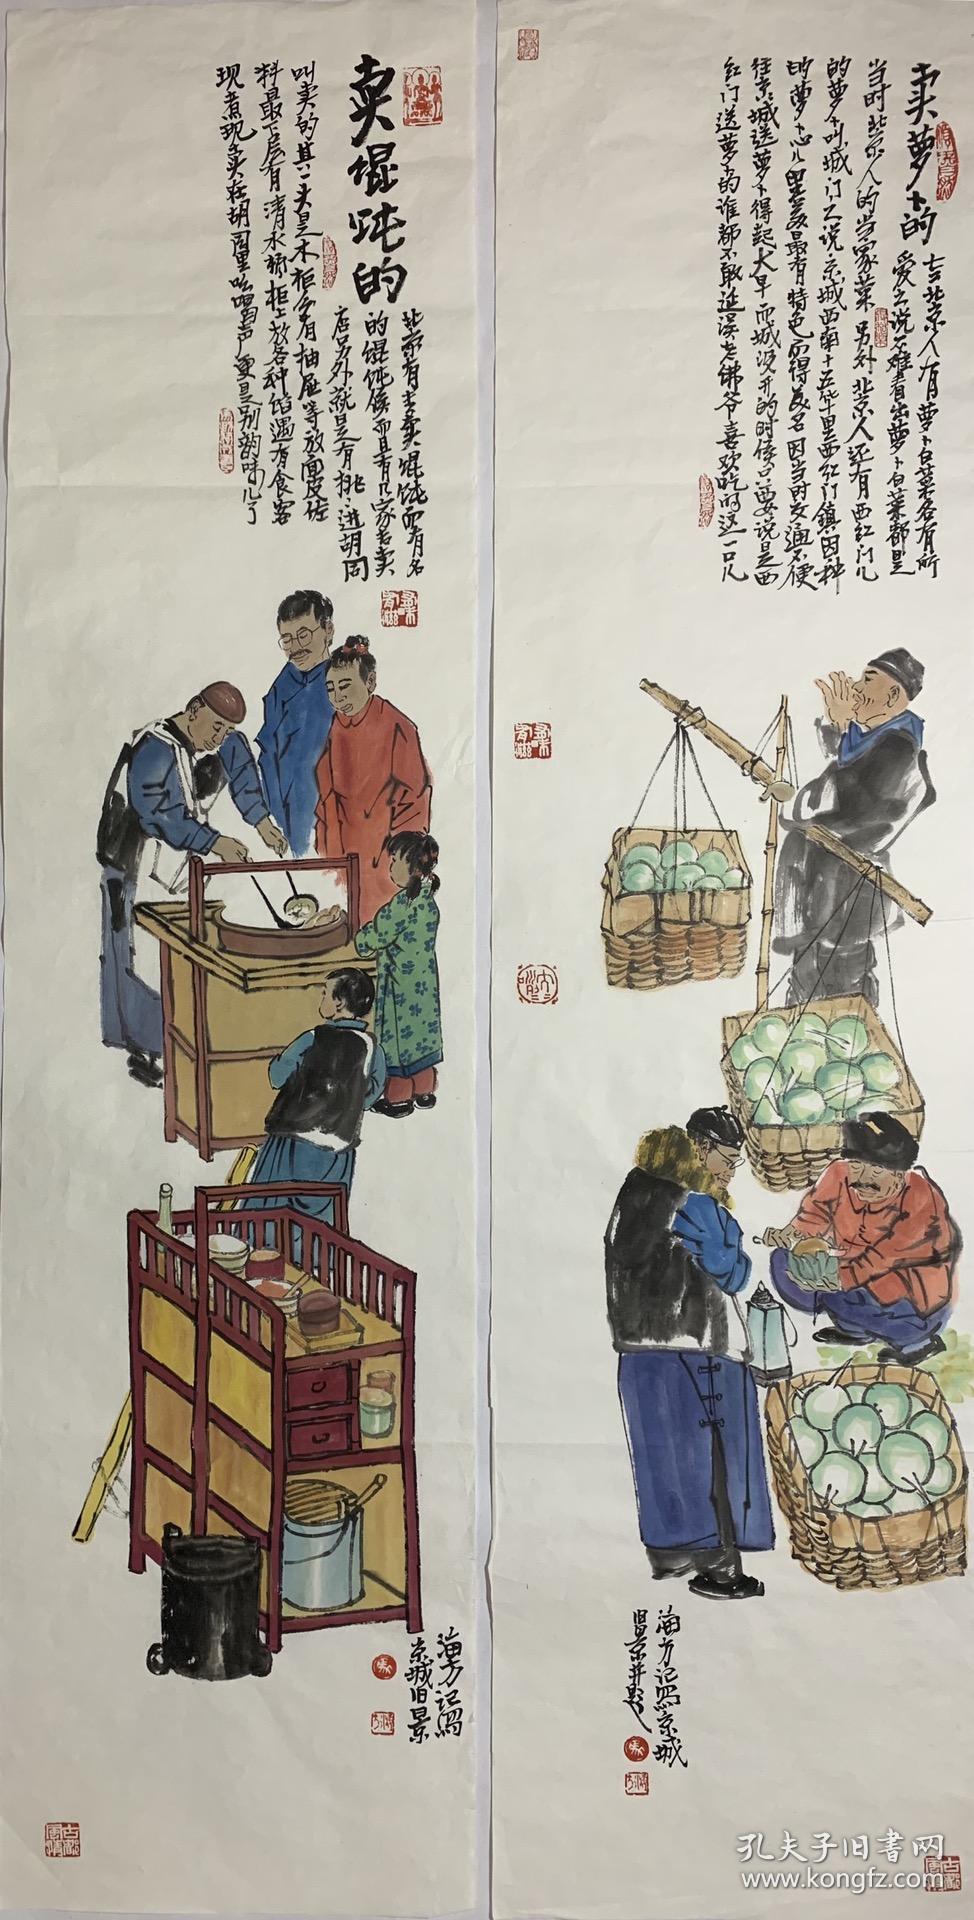 卖萝卜的
古北京人有萝卜白菜各有所
爱之说不难看出萝卜白菜都是
当时北京人的当家菜另外北京人还有西红门儿
的萝卜叫城门之说京城西南十五华里西红门镇因种
的萝卜心儿里美最有特色而得美名因当时交通不便
往京城送萝卜得起大早而城没开的时侯只要说是西
红门送萝卜的谁都不敢延误老佛爷喜欢吃的这一口儿
海方记写京城
旧景并题
卖馄饨的
北京有专卖馄饨而有名
的馄饨侯而且有几家专卖
店另外就是有挑挑进胡同
叫卖的其一头是木柜分有抽屉等放面皮佐
料最下层有清水桶柜上放各种馅遇有食客
现煮现卖在胡同里吆喝声更是别韵味儿了
海方记写
京城旧景
孔夫子旧书网
www.kongfz.com